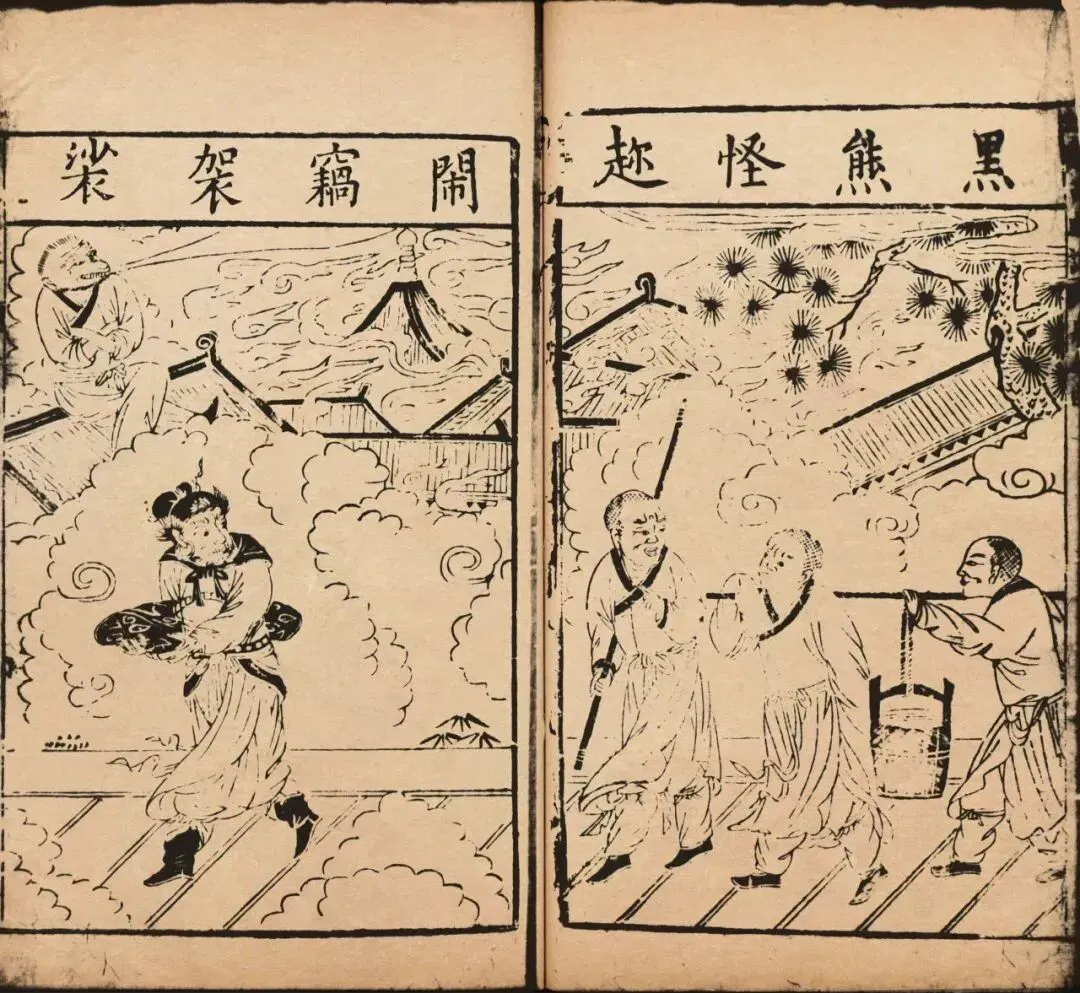 黑熊怪趂
閙竊袈裟